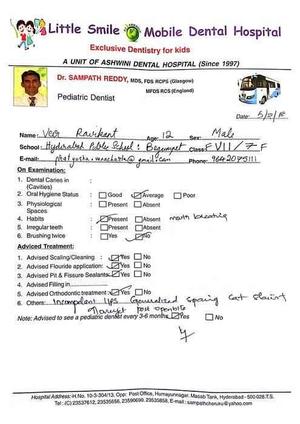 Little Smile Mobile Dental Hospital
Exclusive Dentistry for kids
A UNIT OF ASHWINI DENTAL HOSPITAL (Since 1997)
Dr. SAMPATH REDDY, MDS, FDS RCPS (Glasgow)
MFDS RCS (England)
Pediatric Dentist
Date: 5/2/18
Name: Veer Ravikant Age: 12 Sex: Male
School: Hyderabad Public School: Begumpet Class: VII/7-F
E-mail: @gmail.com Phone: 9642075111
On Examination:
1. Dental Caries in
(Cavities)
2. Oral Hygiene Status : Good Average Poor
3. Physiological : Present Absent
Spaces
4. Habits : Present Absent mouth breathing
5. Irregular teeth : Present Absent
6. Brushing twice : Yes No
Adviced Treatment:
1. Advised Scaling/Cleaning : Yes No
2. Advised Flouride application: Yes No
3. Advised Pit & Fissure Sealants: Yes No
4. Advised Filling in
5. Advised Orthodontic treatment: Yes No
6. Others: Incompetent lips Generalized spacing
post openbite
Note: Advised to see a pediatric dentist every 3-6 months Yes No
Hospital Address: H.No. 10-3-304/13, Opp: Post Office, Humayunnagar, Masab Tank, Hyderabad - 500 028.T.S.
Tel: (C) 23537612, 23535656, 23590690, 23535858, E-mail: sampathcheruku@yahoo.com